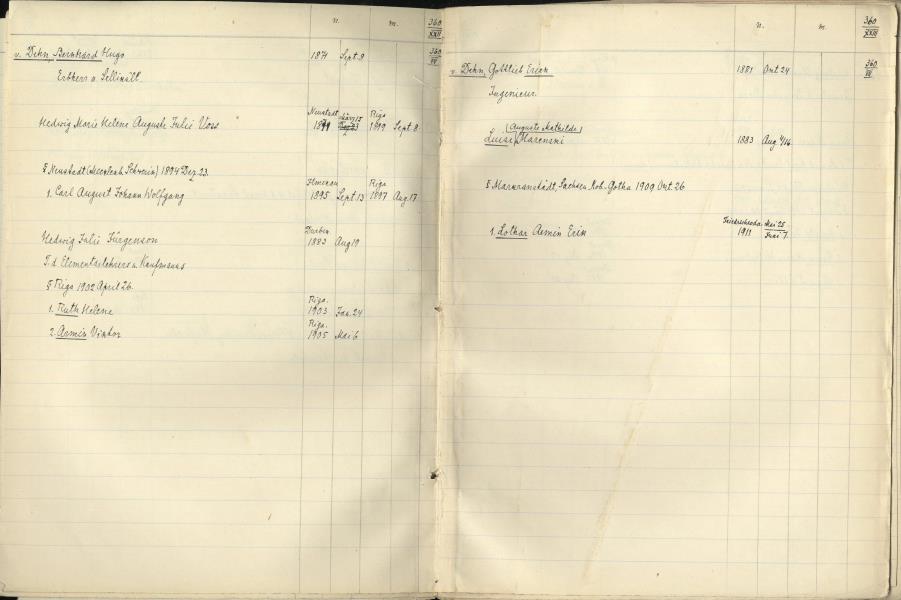 n. m. 360
XXII
v. Dehn, Bernhard Hugo 1871 Sept. 9 360
VI
Erbherr a. Sellinäll.
Neustadt März 15 Riga
Hedwig Marie Helene Auguste Julie Voss 1871 1899 Sept. 8
§ Neustadt (Mecklenb. Schwerin) 1894 Dez. 23.
Ilmenau Riga
1. Carl August Johann Wolfgang 1895 Sept. 13 1897 Aug. 17
Durben
Hedwig Julie Jürgenson 1883 Aug 19
T. d. Elementarlehrers u. Kaufmanns
§ Riga 1902 April 26.
Riga.
1. Ruth Helene 1903 Jan. 24
Riga.
2. Armin Viktor 1905 Mai 6
n. m. 360
XXII
v. Dehn, Gottlieb Erich 1881 Okt 24 360
VI
Ingenieur.
(Auguste Mathilde)
Luise 1883 Aug 4/16
Sachsen Kob. Gotha 1909 Okt. 26
Friedrichroda Mai 25
1. Lothar Armin Erik 1911 Juni 7.